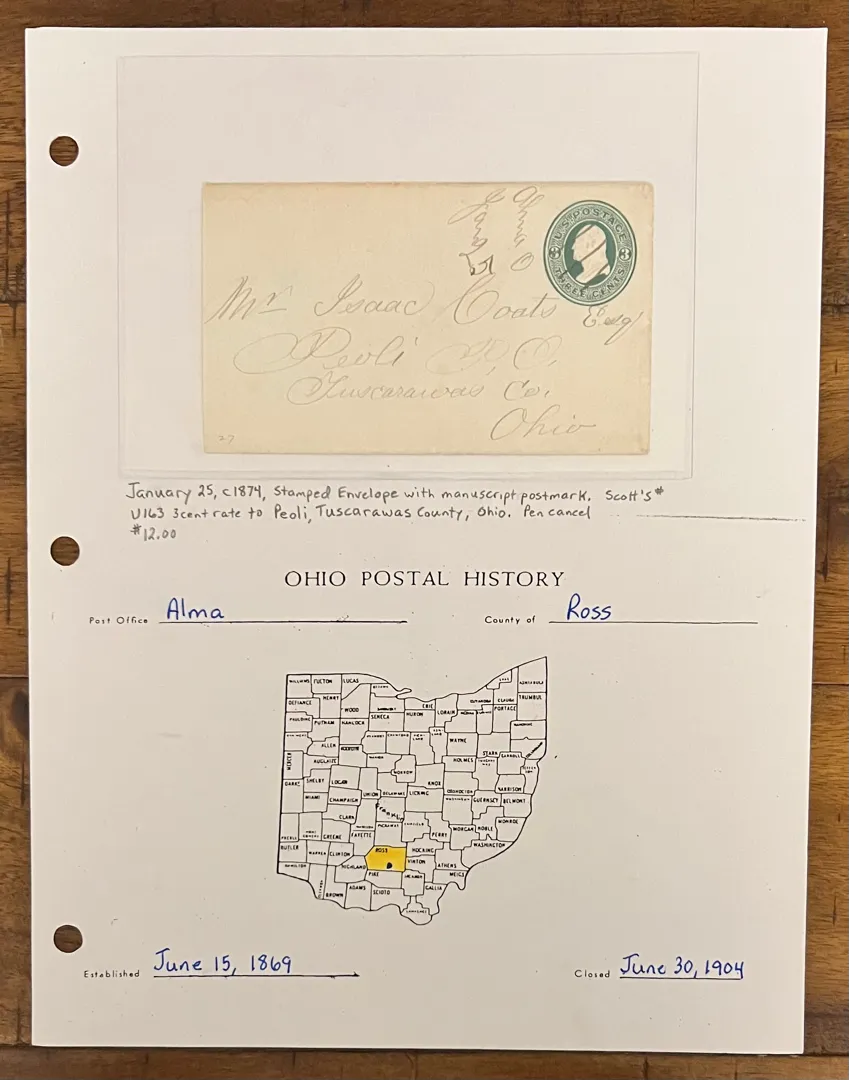 Alma O
Jany 25
U.S. POSTAGE
3 3
THREE CENTS
Mr Isaac Coats Esq
Peoli P.O.
Tuscarawas Co.
Ohio
27
January 25, c1874, Stamped Envelope with manuscript postmark. Scott's #
U163 3cent rate to Peoli, Tuscarawas County, Ohio. Pen cancel
$12.00
OHIO POSTAL HISTORY
Post Office Alma County of Ross
WILLIAMS FULTON LUCAS
DEFIANCE HENRY WOOD ERIE LORAIN PORTAGE TRUMBUL
PAULDING PUTNAM HANCOCK SENECA HURON
ALLEN WAYNE
MERCER AUGLAIZE HOLMES STARK CARROLL
MORROW
DARKE SHELBY LOGAN UNION DELAWARE LICKING KNOX COSHOCTON HARRISON
MIAMI CHAMPAIGN GUERNSEY BELMONT
CLARK FRANKLIN
PREBLE GREENE FAYETTE PICKAWAY PERRY MORGAN NOBLE MONROE
BUTLER WARREN CLINTON ROSS HOCKING WASHINGTON
HAMILTON HIGHLAND VINTON ATHENS
PIKE MEIGS
BROWN ADAMS SCIOTO GALLIA
Established June 15, 1869 Closed June 30, 1904